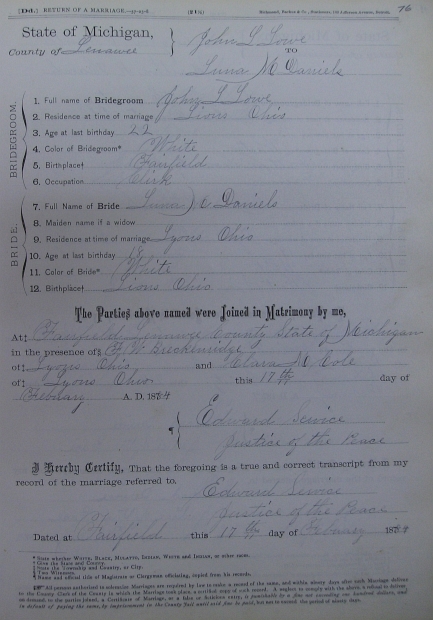 [Dd.] RETURN OF A MARRIAGE,
76
State of Michigan,
County of Lenawee
John L Lowe
TO
Luna McDaniels
BRIDEGROOM.
1. Full name of Bridegroom John L Lowe
2. Residence at time of marriage Lions Ohio
3. Age at last birthday 22
4. Color of Bridegroom* White
5. Birthplace† Fairfield
6. Occupation Clerk
BRIDE.
7. Full Name of Bride Luna McDaniels
8. Maiden name if a widow
9. Residence at time of marriage Lyons Ohio
10. Age at last birthday
11. Color of Bride* White
12. Birthplace† Lions Ohio
The Parties above named were Joined in Matrimony by me,
At‡ Fairfield Lenawee County State of Michigan
in the presence of F. W. Breckenridge
of‡ Lyons Ohio and Clara M. Cole
of‡ Lyons Ohio this 17th day of
February A. D. 1884
Edward Service
Justice of the Peace
I Hereby Certify, That the foregoing is a true and correct transcript from my
record of the marriage referred to.
Edward Service
Justice of the Peace
Dated at Fairfield this 17th day of February 1884
* Note whether WHITE, BLACK, MULATTO, INDIAN, WHITE AND INDIAN, or other name.
† Give the State and County.
‡ State the Township and County, or City.
Two Witnesses.
¶ Name and official title of Magistrate or Clergyman officiating, copied from his records.